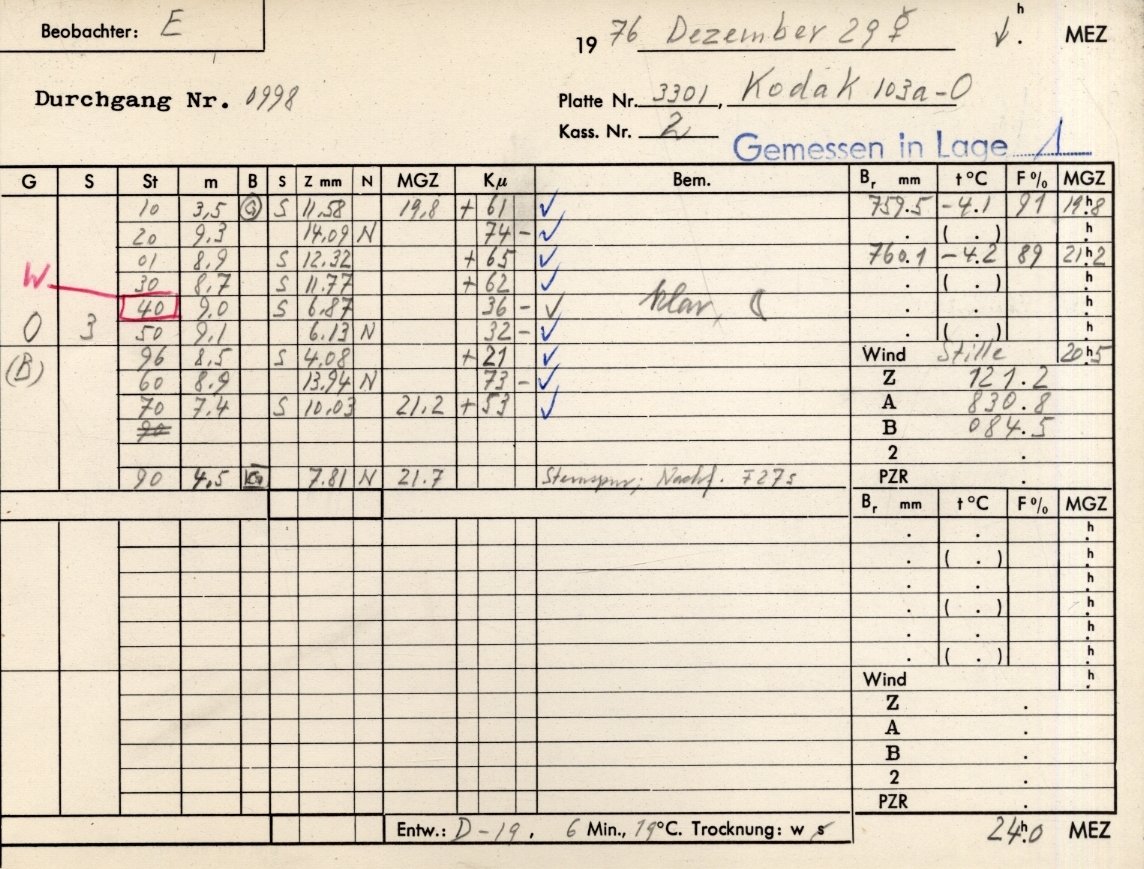 Beobachter: E
19 76 Dezember 29 ☿ h . MEZ
Durchgang Nr. 0998
Platte Nr. 3301, Kodak 103a-O
Kass. Nr. 2
Gemessen in Lage 1
G S St m B S Z mm N MGZ Kμ Bem. Br mm t °C F % MGZ
10 3,5 G S 11.58 19,8 + 61 ✓ 759.5 -4.1 91 19h.8
20 9.3 14.09 N 74 - ✓ . ( . ) h.
01 8.9 S 12.32 + 65 ✓ 760.1 -4.2 89 21h.2
W 30 8.7 S 11.77 + 62 ✓ . ( . ) h.
40 9.0 S 6.87 36 - ✓ klar, ☾ . . h.
O 3 50 9.1 6.13 N 32 - ✓ . ( . ) h.
(B) 96 8.5 S 4.08 + 21 ✓ Wind Stille 20h.5
60 8.9 13.94 N 73 - ✓ Z 121.2
70 7.4 S 10.03 21.2 + 53 ✓ A 830.8
90 B 084.5
2 .
90 4.5 7.81 N 21.7 Sternspur; Nachf. 727s PZR .
Br mm t °C F % MGZ
. . h.
. ( . ) h.
. . h.
. ( . ) h.
. . h.
. ( . ) h.
Wind h.
Z .
A .
B .
2 .
PZR .
Entw.: D-19, 6 Min., 19°C. Trocknung: w s
24h.0 MEZ